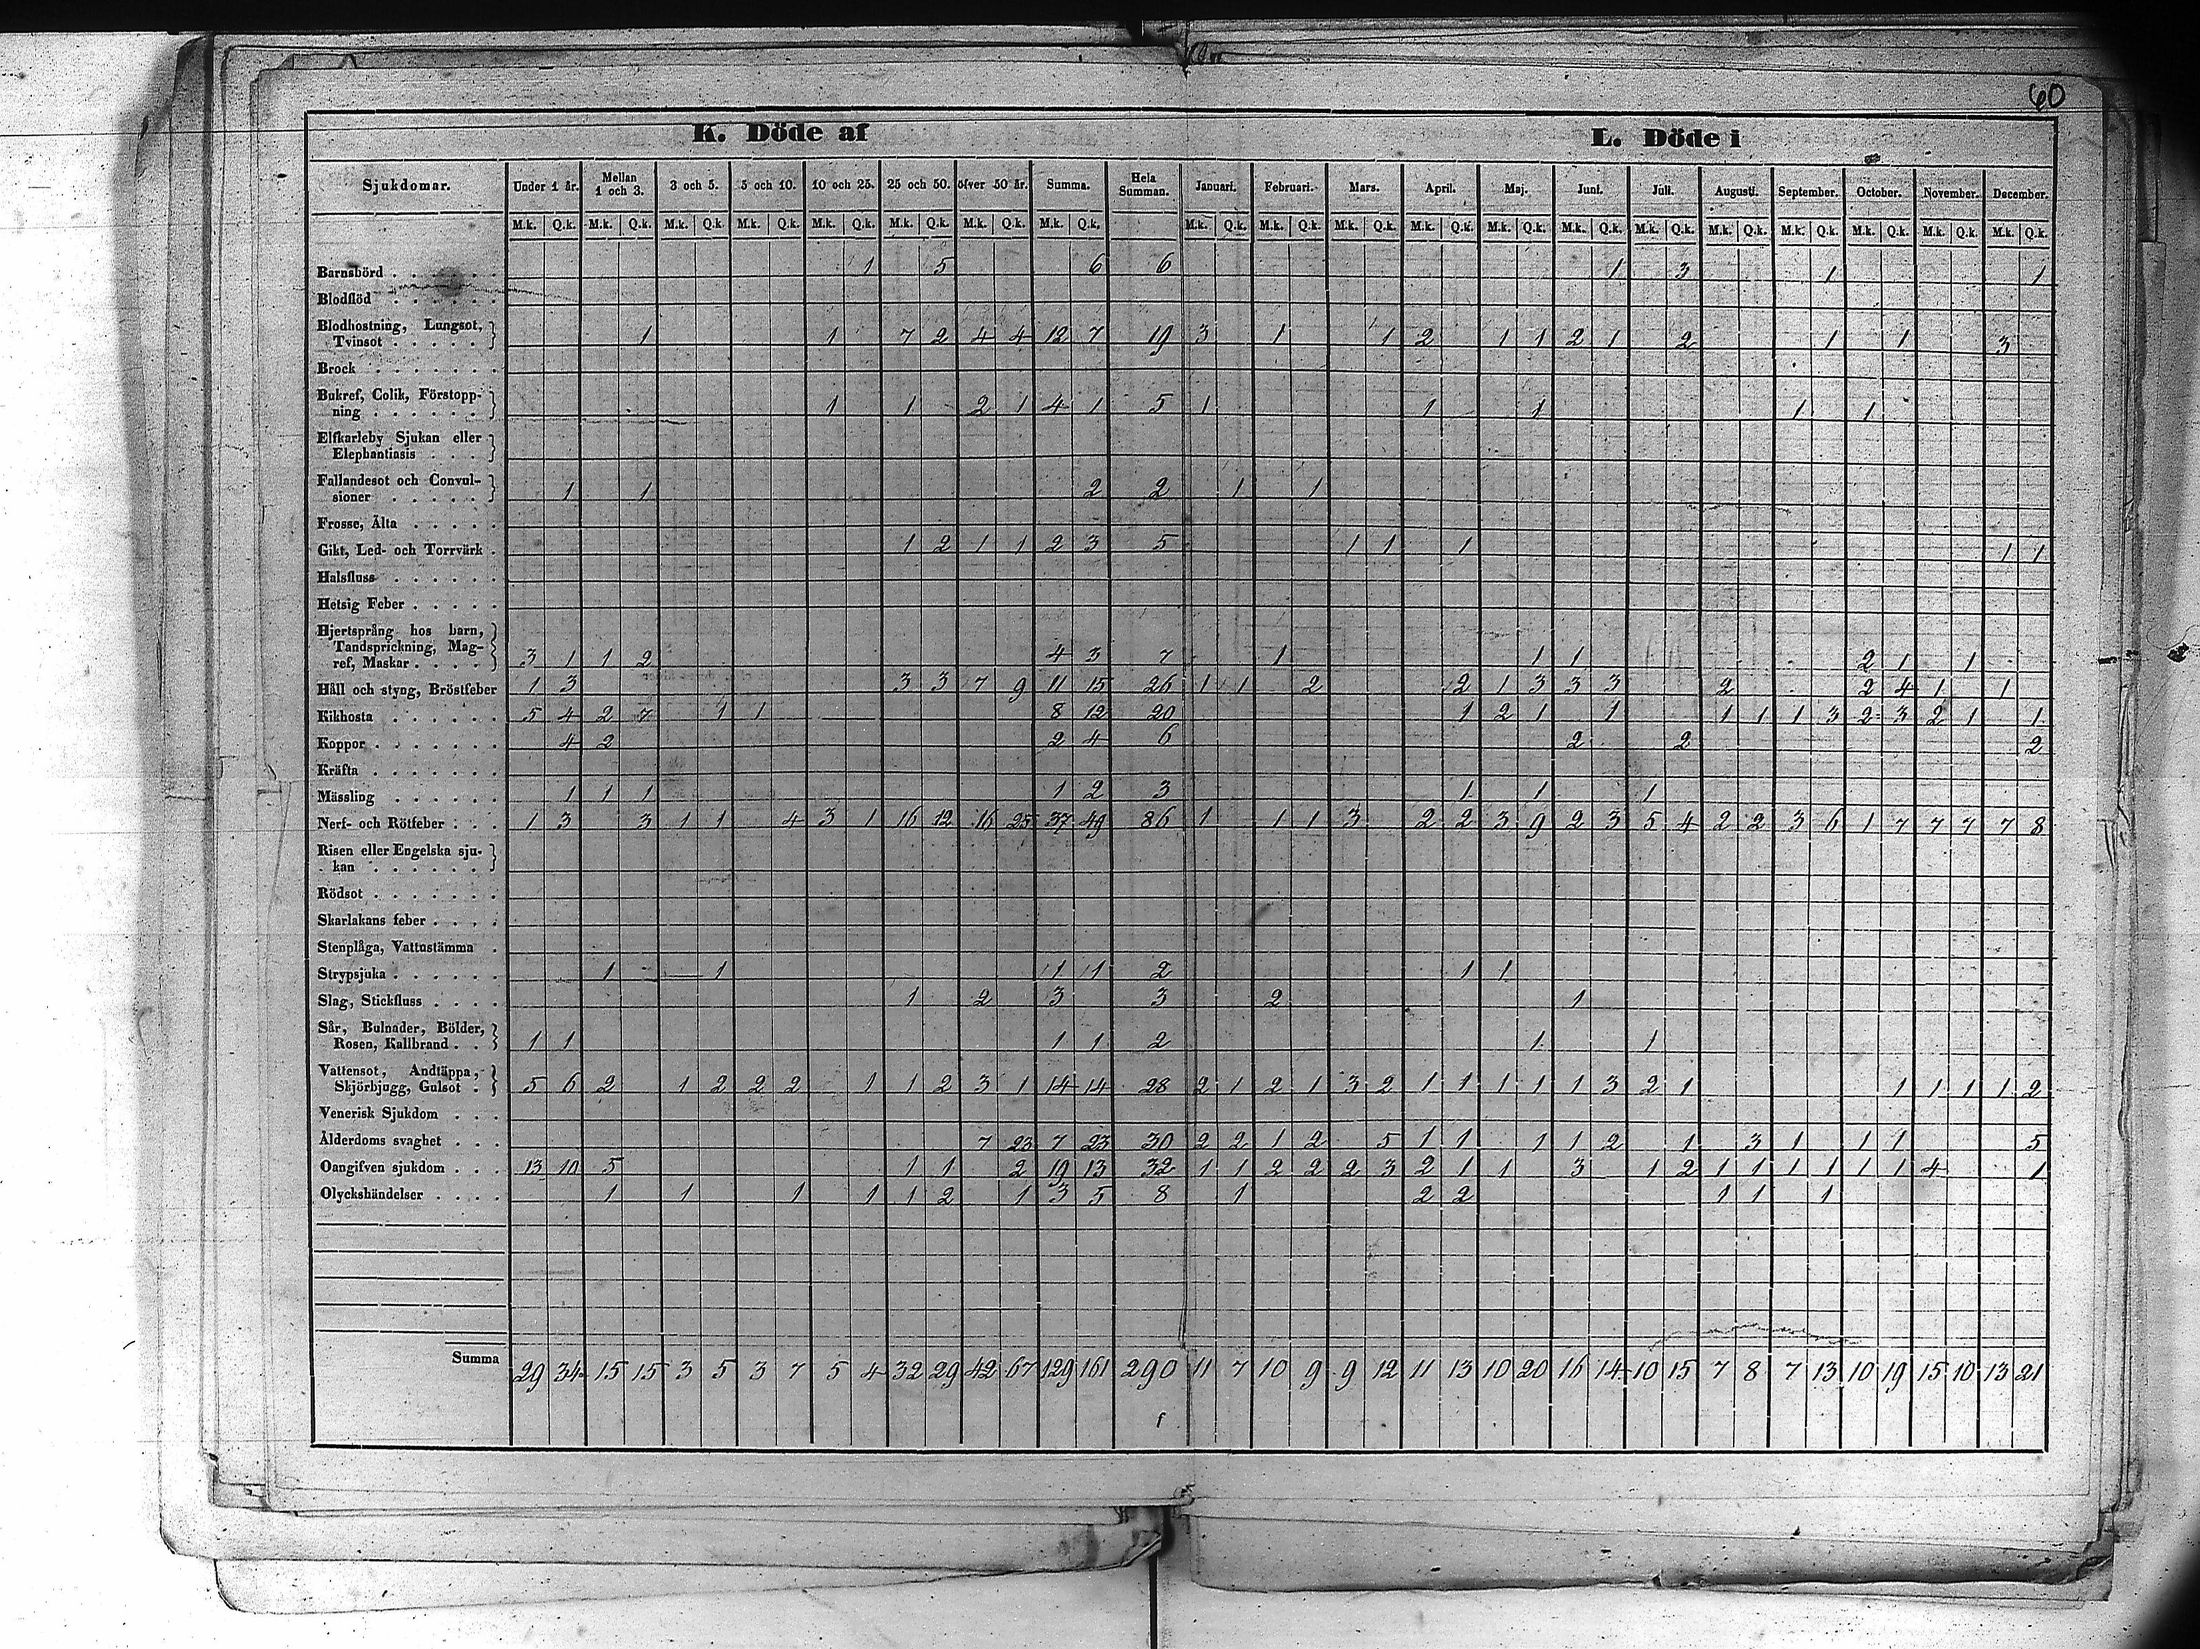 60
K. Döde af L. Döde i
Sjukdomar. Under 1 år. Mellan 1 och 3. 3 och 5. 5 och 10. 10 och 25. 25 och 50. öfver 50 år. Summa. Hela Summan. Januari. Februari. Mars. April. Maj. Juni. Juli. Augusti. September. October. November. December.
M.k. Q.k. M.k. Q.k. M.k. Q.k. M.k. Q.k. M.k. Q.k. M.k. Q.k. M.k. Q.k. M.k. Q.k. M.k. Q.k. M.k. Q.k. M.k. Q.k. M.k. Q.k. M.k. Q.k. M.k. Q.k. M.k. Q.k. M.k. Q.k. M.k. Q.k. M.k. Q.k. M.k. Q.k. M.k. Q.k.
Barnsbörd 1 5 6 6 1 3 1 1
Blodflöd
Blodhostning, Lungsot,
Tvinsot 1 1 7 2 4 4 12 7 19 3 1 1 2 1 1 2 1 2 1 1 3
Brock
Bukref, Colik, Förstopp-
ning 1 1 2 1 4 1 5 1 1 1 1 1
Elfkarleby Sjukan eller
Elephantiasis
Fallandesot och Convul-
sioner 1 1 2 2 1 1
Frosse, Älta
Gikt, Led- och Torrvärk 1 2 1 1 2 3 5 1 1 1 1 1
Halsfluss
Hetsig Feber
Hjertsprång hos barn,
Tandsprickning, Mag-
ref, Maskar 3 1 1 2 4 3 7 1 1 1 2 1 1
Håll och styng, Bröstfeber 1 3 3 3 7 9 11 15 26 1 1 2 2 1 3 3 3 2 2 4 1 1
Kikhosta 5 4 2 7 1 1 8 12 20 1 2 1 1 1 1 1 3 2 3 2 1 1
Koppor 4 2 2 4 6 2 2 2
Kräfta
Mässling 1 1 1 1 2 3 1 1 1
Nerf- och Rötfeber 1 3 3 1 1 4 3 1 16 12 16 25 37 49 86 1 1 1 3 2 2 3 9 2 3 5 4 2 2 3 6 1 7 7 7 7 8
Risen eller Engelska sju-
kan
Rödsot
Skarlakans feber
Stenplåga, Vattustämma
Strypsjuka 1 1 1 1 2 1 1
Slag, Stickfluss 1 2 3 3 2 1
Sår, Bulnader, Bölder,
Rosen, Kallbrand 1 1 1 1 2 1 1
Vattensot, Andtäppa,
Skjörbjugg, Gulsot 5 6 2 1 2 2 2 1 1 2 3 1 14 14 28 2 1 2 1 3 2 1 1 1 1 1 3 2 1 1 1 1 1 2
Venerisk Sjukdom
Ålderdoms svaghet 7 23 7 23 30 2 2 1 2 5 1 1 1 1 2 1 3 1 1 1 5
Oangifven sjukdom 13 10 5 1 1 2 19 13 32 1 1 2 2 2 3 2 1 1 3 1 2 1 1 1 1 1 1 4 1
Olyckshändelser 1 1 1 1 1 2 1 3 5 8 1 2 2 1 1 1
Summa 29 34 15 15 3 5 3 7 5 4 32 29 42 67 129 161 290 11 7 10 9 9 12 11 13 10 20 16 14 10 15 7 8 7 13 10 19 15 10 13 21